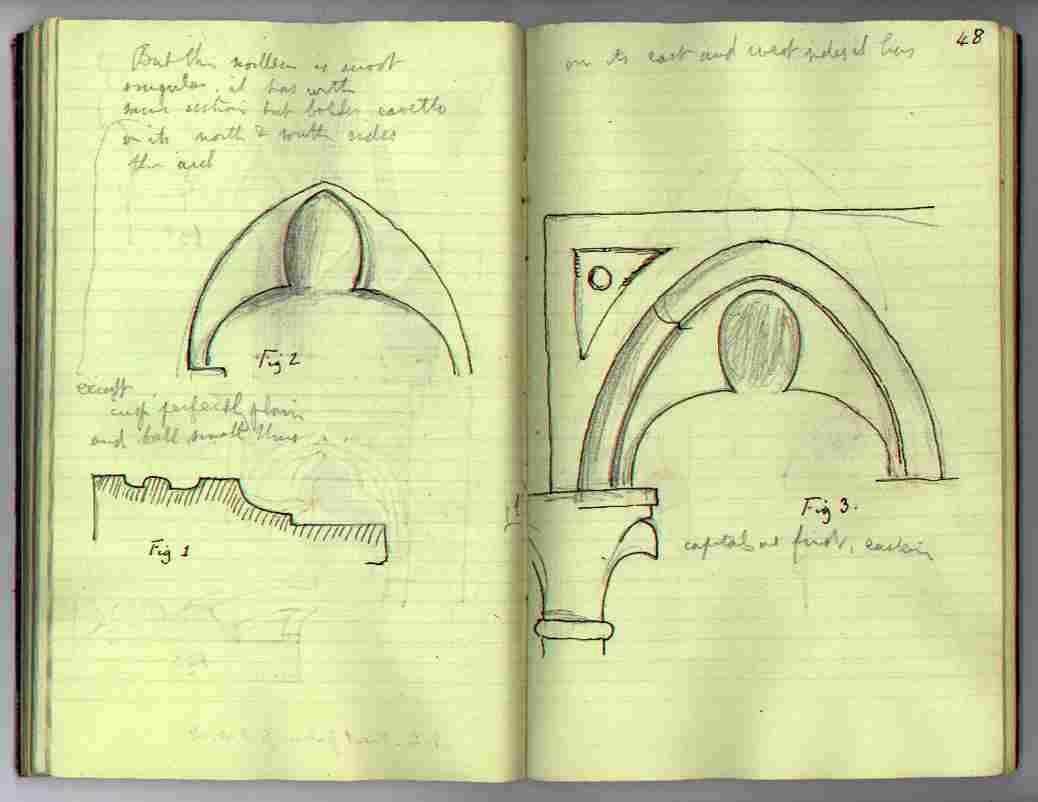 But this northern is most
irregular. it has with
same section but bolder cavetto
on its north & south sides
the arch
Fig 2
except
cusp perfectly plain
and ball small thus
Fig 1
48
on its east and west sides it has
Fig 3.
capitals as first,